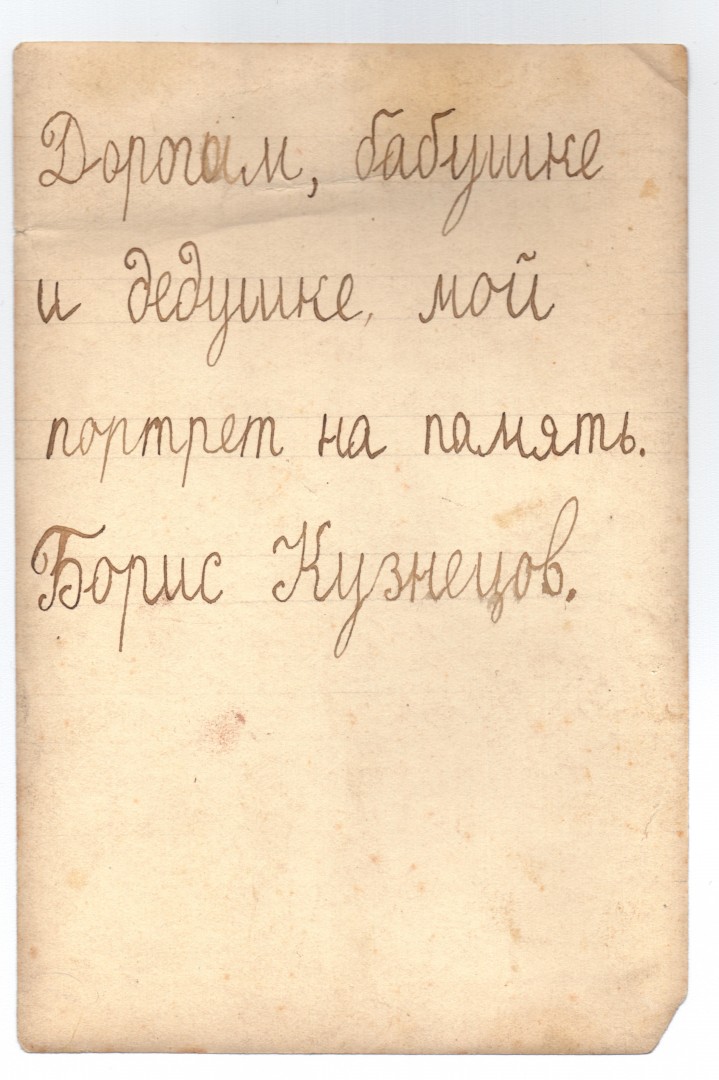 Дорогим, бабушке
и дедушке, мой
портрет на память.
Борис Кузнецов.